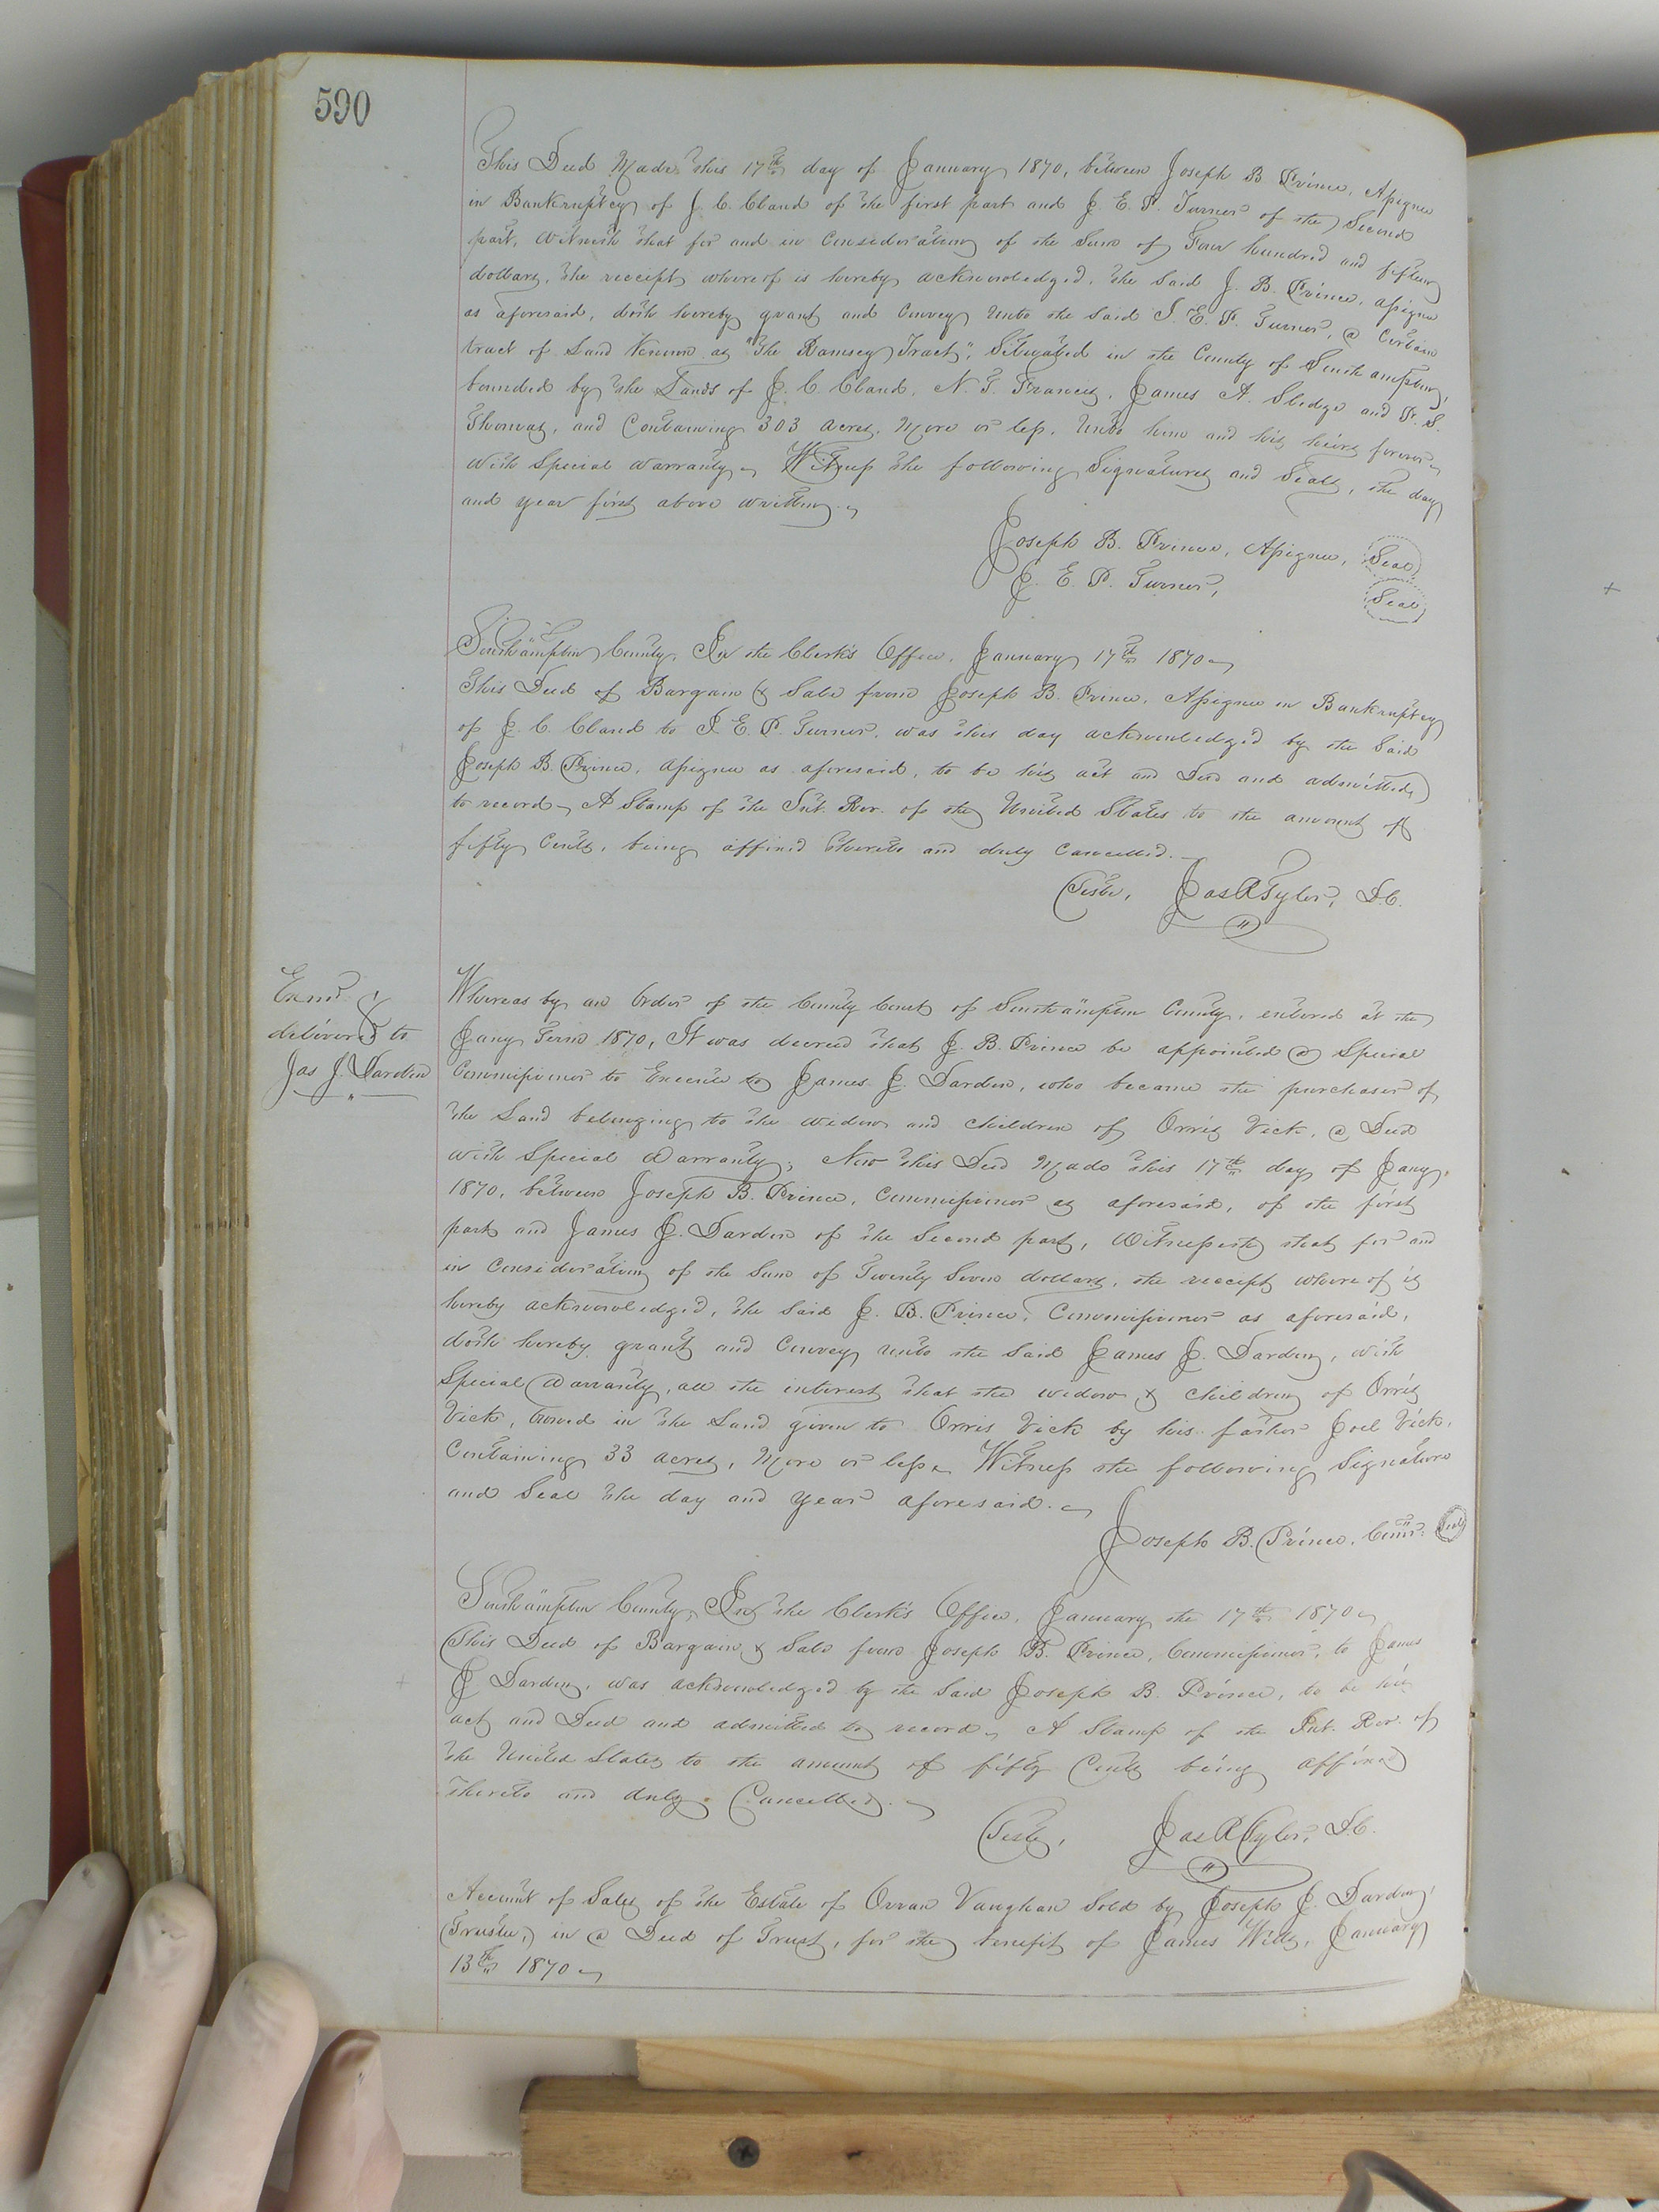 590
This Deed Made this 17th day of January 1870, between Joseph B Prince, Assignee
in Bankruptcy of J. C. Cland of the first part and J. E. P. Turner of the Second
part, Witnesseth that for and in Consideration of the Sum of Four hundred and fifteen
dollars, the receipt whereof is hereby acknowledged, the said J. B. Prince, assignee
as aforesaid, doth hereby grant and Convey unto the said J. E. P. Turner, a Certain
tract of Land Known as "The Ramsey Tract", Situated in the County of Southampton,
bounded by the Lands of J. C. Cland, N. T. Francis, James A. Sledge and P. S.
Thomas, and Containing 303 acres, More or less, Unto him and his heirs forever
With Special warranty. Witness the following Signatures and Seals, the day
and year first above written.
Joseph B. Prince, Assignee, Seal
J. E. P. Turner, Seal
Southampton County, In the Clerk's Office, January 17th 1870
This Deed of Bargain & Sale from Joseph B. Prince, Assignee in Bankruptcy
of J. C. Cland to J. E. P. Turner, was this day acknowledged by the Said
Joseph B. Prince, Assignee as aforesaid, to be his act and Deed and admitted
to record. A Stamp of the Int. Rev. of the United States to the amount of
fifty Cents, being affixed thereto and duly Cancelled.
Teste, Jas R Tyler, D.C.
Exmd &
delivered to
Jas J. Darden
Whereas by an Order of the County Court of Southampton County, entered at the
Jany Term 1870, It was decreed that J. B. Prince be appointed a Special
Commissioner to Execute to James J. Darden, who became the purchaser of
the Land belonging to the widow and children of Orris Vick, a Deed
with Special Warranty; Now this Deed Made this 17th day of Jany.
1870, between Joseph B. Prince, Commissioner as aforesaid, of the first
part and James J. Darden of the Second part, Witnesseth that for and
in Consideration of the Sum of Twenty Seven dollars, the receipt where of is
hereby acknowledged, the Said J. B. Prince, Commissioner as aforesaid,
doth hereby grant and Convey unto the Said James J. Darden, with
Special Warranty, all the interest that the widow & children of Orris
Vick, owned in the Land given to Orris Vick by his father Joel Vick,
Containing 33 acres, More or less. Witness the following Signature
and Seal the day and year aforesaid.
Joseph B. Prince, Comr. Seal
Southampton County, In the Clerk's Office, January the 17th 1870
This Deed of Bargain & Sale from Joseph B. Prince, Commissioner, to James
J Darden, was acknowledged by the Said Joseph B. Prince, to be his
act and Deed and admitted to record. A Stamp of the Int. Rev. of
the United States to the amount of fifty Cents being affixed
thereto and duly Cancelled.
Teste, Jas R Tyler, D.C.
Account of Sales of the Estate of Orran Vaughan Sold by Joseph J. Darden,
(Trustee,) in a Deed of Trust, for the benefit of James Wills, January
13th 1870